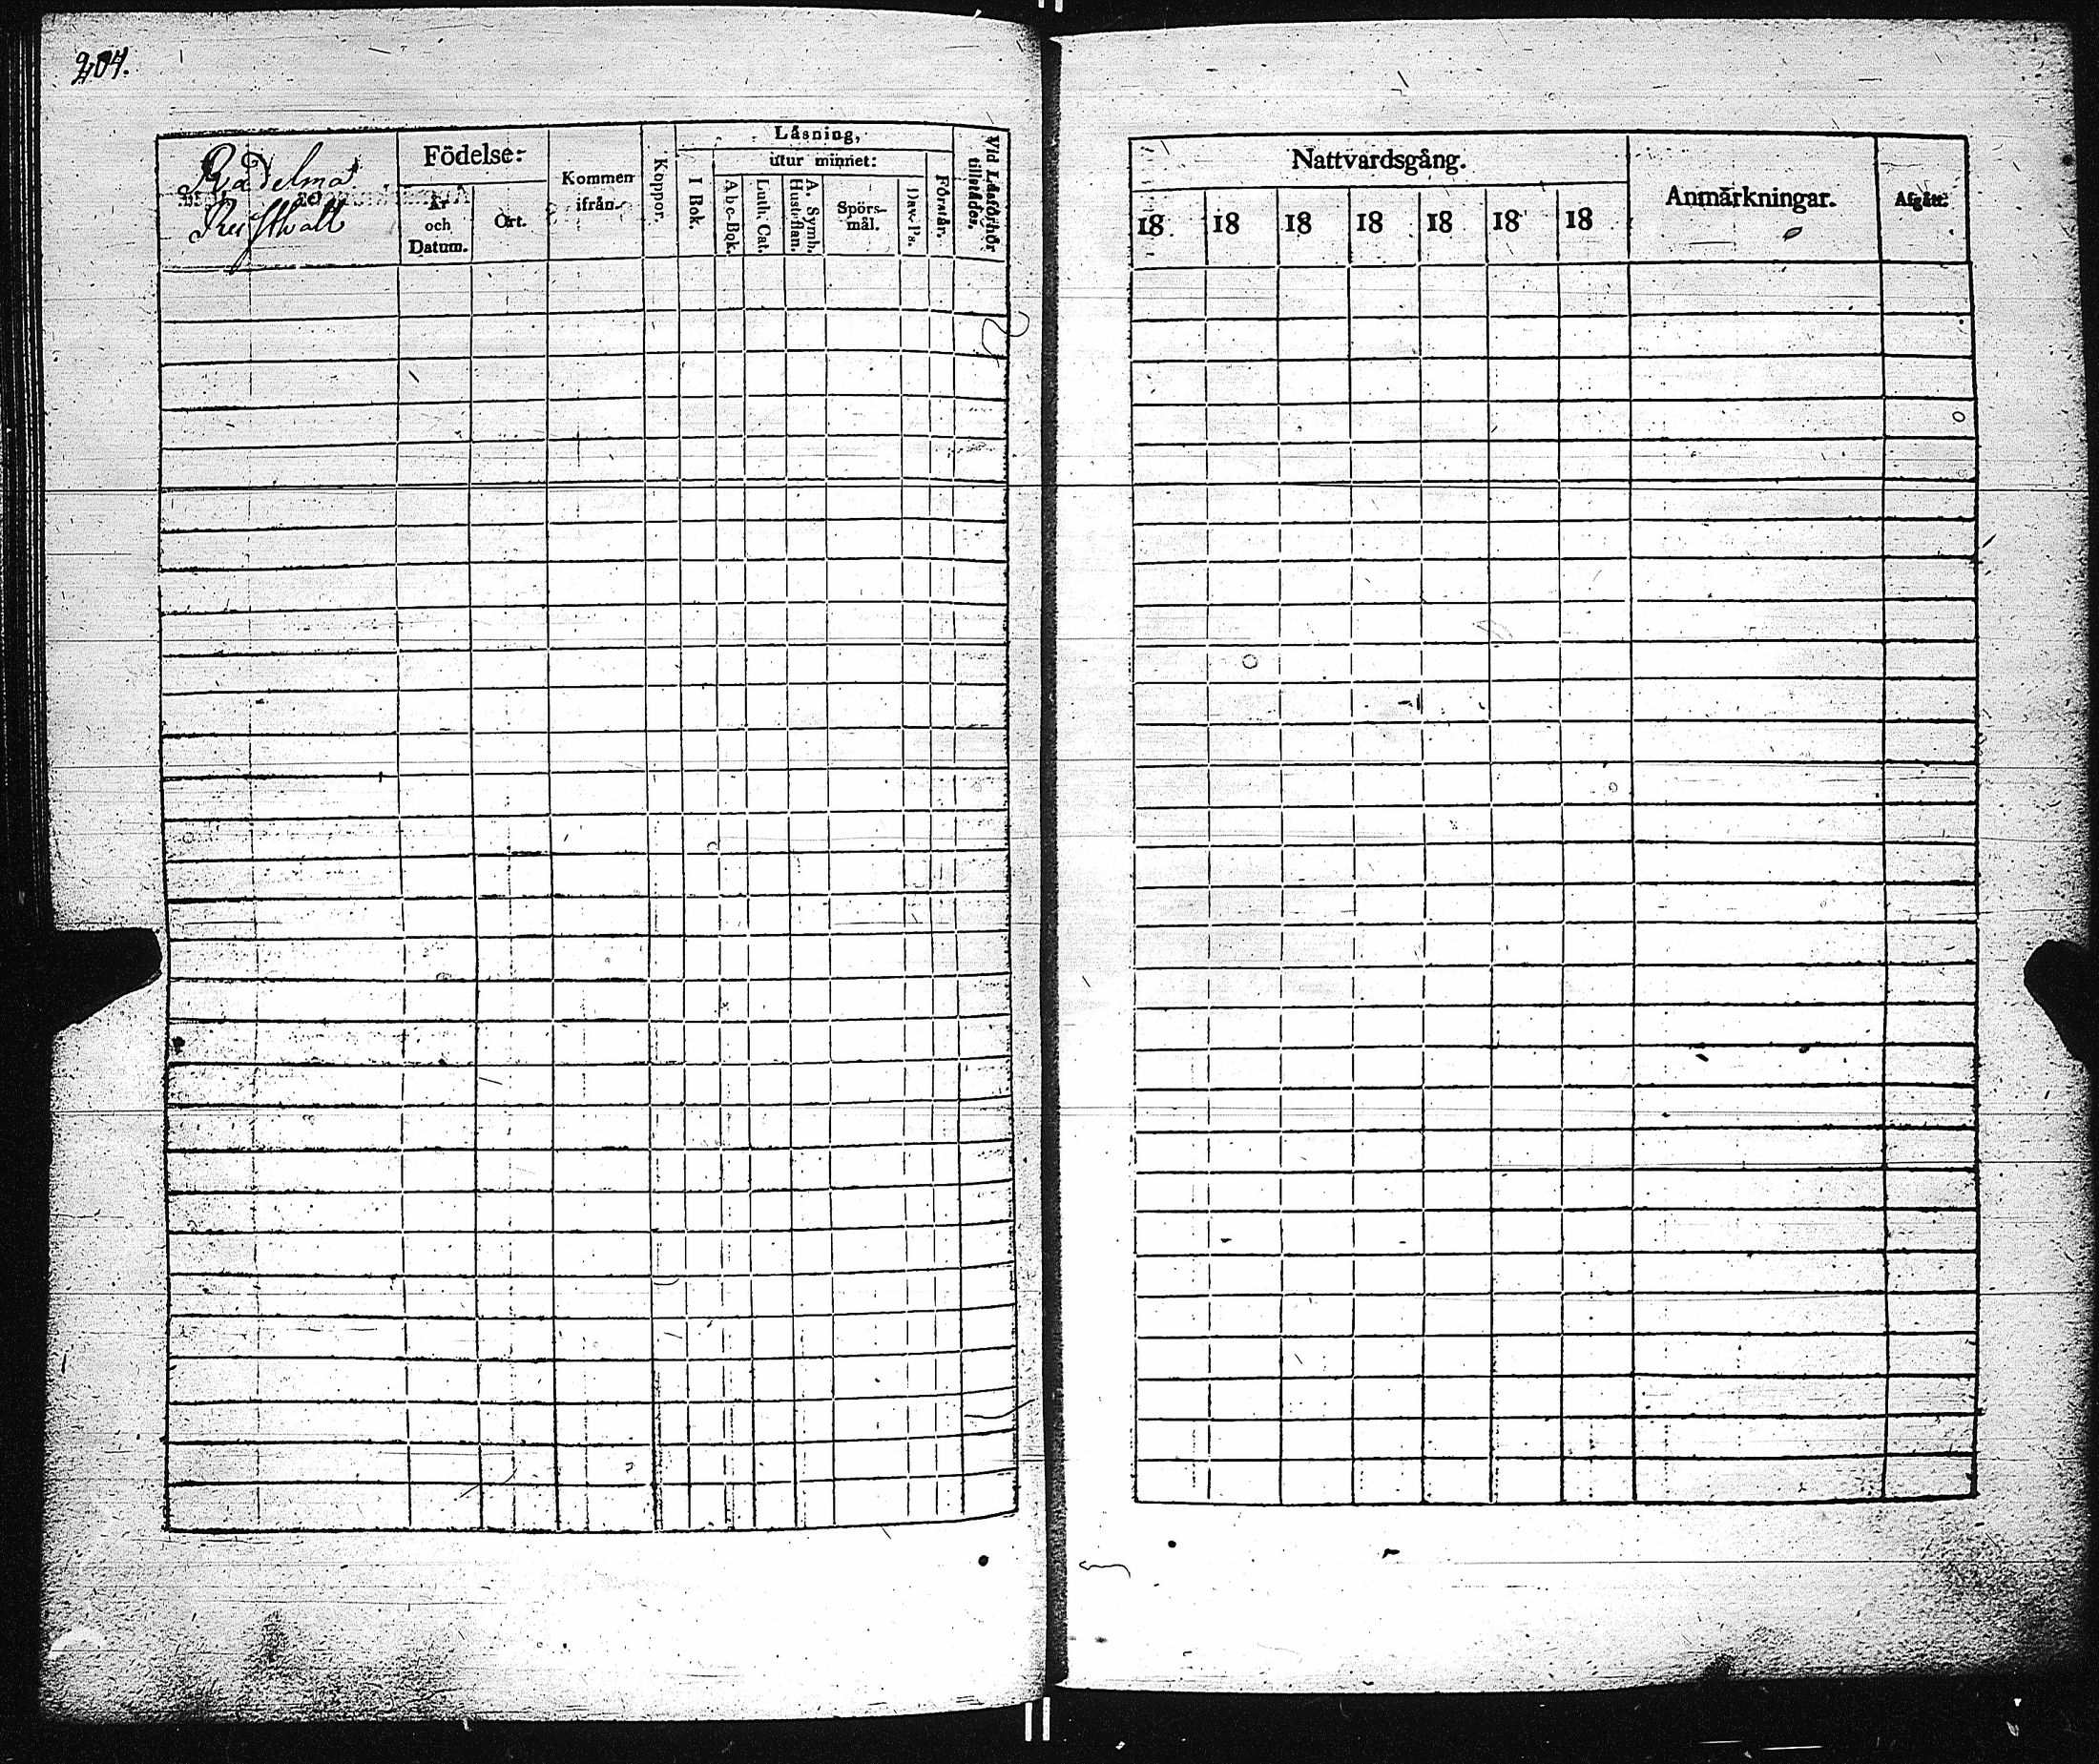 204.
Rådelma
Rusthåll
Födelse:
År och Datum.
Ort.
Kommen ifrån.
Koppor.
Läsning,
I Bok.
utur minnet:
A b c-Bok.
Luth. Cat.
A. Symb. Hustaflan.
Spörs-mål.
Dav. Ps.
Förstår.
Vid Läsförhör tillstädes.
Nattvardsgång.
18 18 18 18 18 18 18
Anmärkningar.
Afgått: